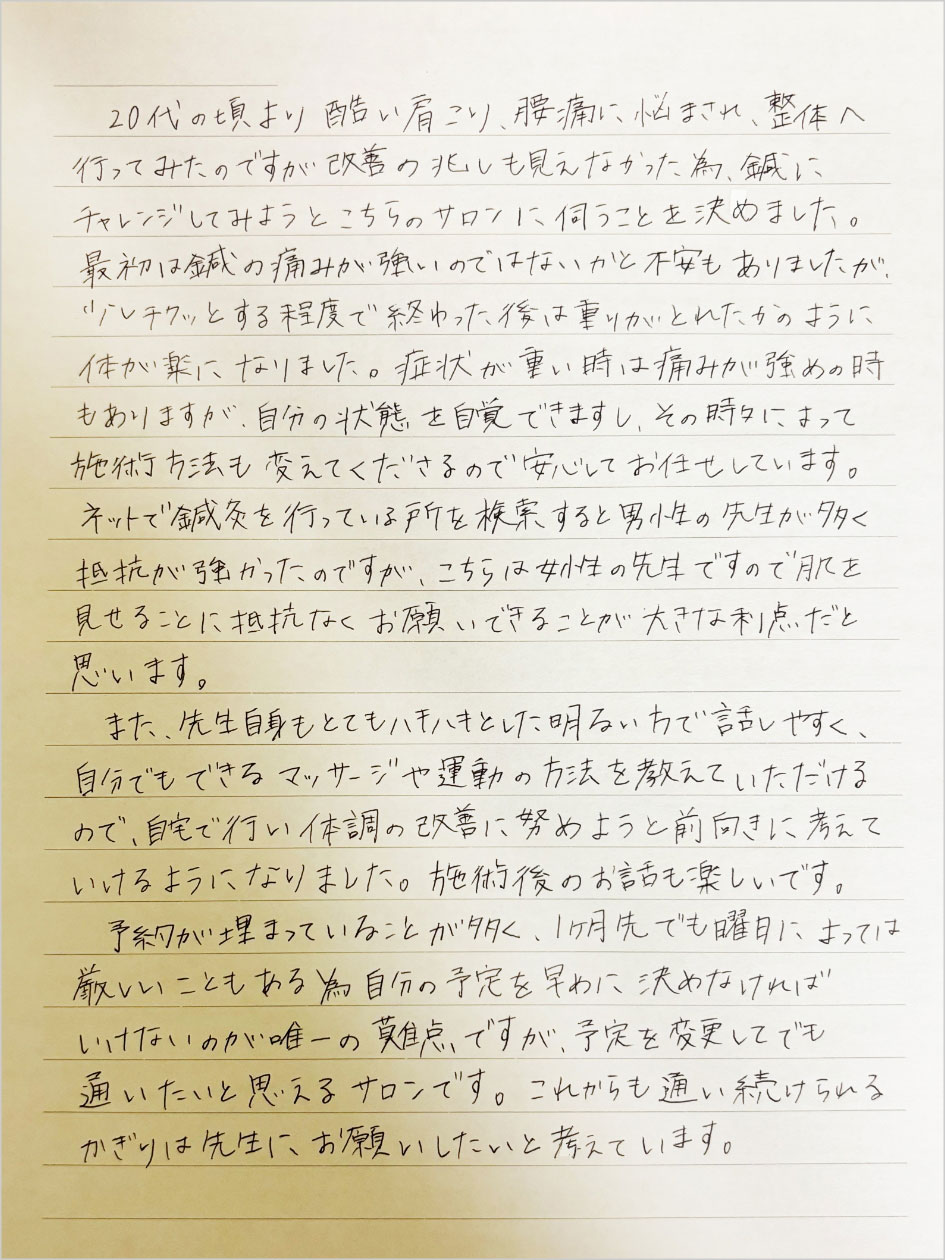 20代の頃より酷い肩こり、腰痛に悩まされ、整体へ
行ってみたのですが改善の兆しも見えなかった為、鍼に
チャレンジしてみようとこちらのサロンに伺うことを決めました。
最初は鍼の痛みが強いのではないかと不安もありましたが、
少しチクッとする程度で終わった後は重りがとれたかのように
体が楽になりました。症状が重い時は痛みが強めの時
もありますが、自分の状態を自覚できますし、その時々によって
施術方法も変えてくださるので安心してお任せしています。
ネットで鍼灸を行っている所を検索すると男性の先生が多く
抵抗が強かったのですが、こちらは女性の先生ですので肌を
見せることに抵抗なくお願いできることが大きな利点だと
思います。
また、先生自身もとてもハキハキとした明るい方で話しやすく、
自分でもできるマッサージや運動の方法を教えていただける
ので、自宅で行い体調の改善に努めようと前向きに考えて
いけるようになりました。施術後のお話も楽しいです。
予約が埋まっていることが多く、1ヶ月先でも曜日によっては
厳しいこともある為自分の予定を早めに決めなければ
いけないのが唯一の難点ですが、予定を変更してでも
通いたいと思えるサロンです。これからも通い続けられる
かぎりは先生にお願いしたいと考えています。